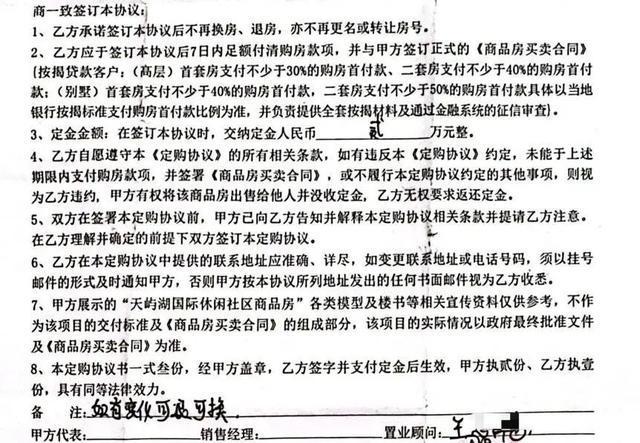 商一致签订本协议:
1、乙方承诺签订本协议后不再换房、退房，亦不再更名或转让房号。
2、乙方应于签订本协议后7日内足额付清购房款项，并与甲方签订正式的《商品房买卖合同》
{按揭贷款客户:（高层）首套房支付不少于30%的购房首付款、二套房支付不少于40%的购房首付
款;（别墅）首套房支付不少于40%的购房首付款、二套房支付不少于50%的购房首付款具体以当地
银行按揭标准支付购房首付款比例为准，并负责提供全套按揭材料及通过金融系统的征信审查}。
3、定金金额: 在签订本协议时，交纳定金人民币 贰 万元整。
4、乙方自愿遵守本《定购协议》的所有相关条款，如有违反本《定购协议》约定，未能于上述
期限内支付购房款项，并签署《商品房买卖合同》，或不履行本定购协议约定的其他事项，则视
为乙方违约，甲方有权将该商品房出售给他人并没收定金，乙方无权要求返还定金。
5、双方在签署本定购协议前，甲方已向乙方告知并解释本定购协议相关条款并提请乙方注意。
在乙方理解并确定的前提下双方签订本定购协议。
6、乙方在本定购协议中提供的联系地址应准确、详尽，如变更联系地址或电话号码，须以挂号
邮件的形式及时通知甲方，否则甲方按本协议所列地址发出的任何书面邮件视为乙方收悉。
7、甲方展示的“天屿湖国际休闲社区商品房”各类模型及楼书等相关宣传资料仅供参考，不作
为该项目的交付标准及《商品房买卖合同》的组成部分，该项目的实际情况以政府最终批准文件
及《商品房买卖合同》为准。
8、本定购协议书一式叁份，经甲方盖章，乙方签字并支付定金后生效，甲方执贰份、乙方执壹
份，具有同等法律效力。
备 注: 如有变化可退可换
甲方代表: 销售经理: 置业顾问: 王